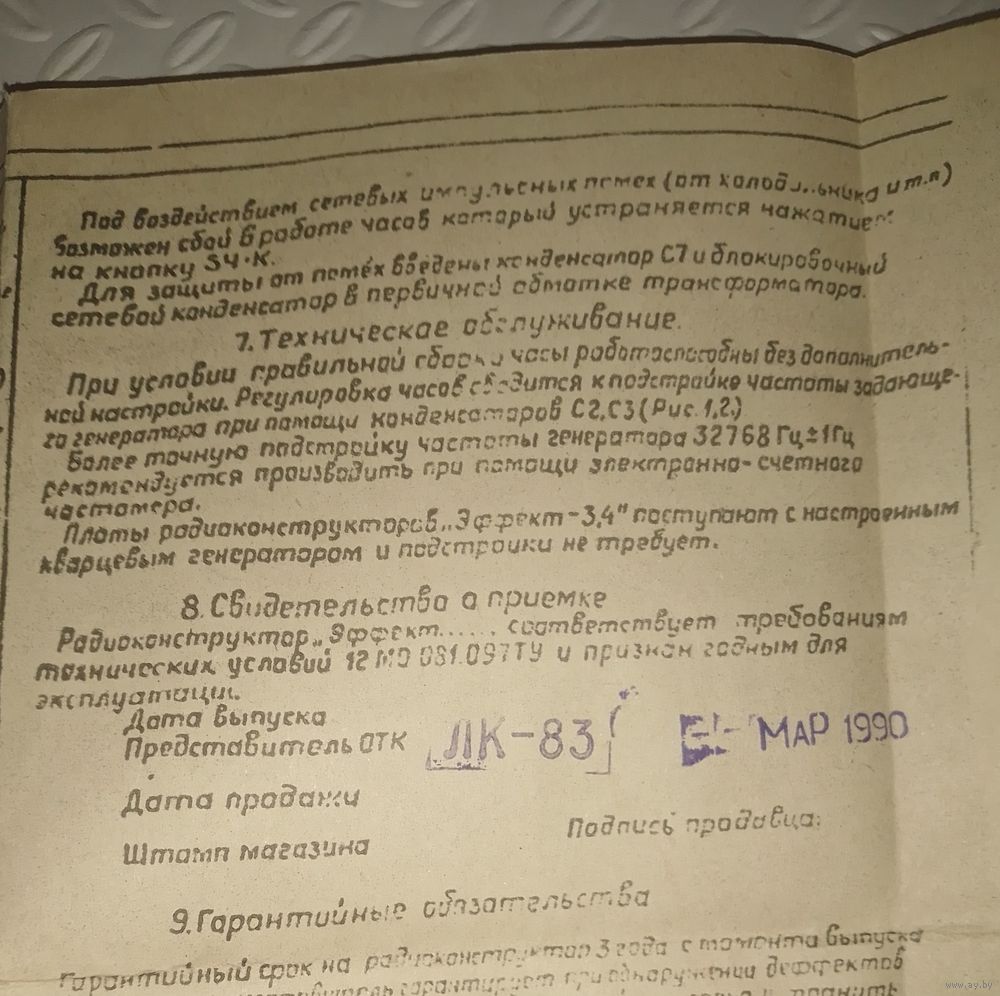 Под воздействием сетевых импульсных помех (от холод...ьника и т.п)
возможен сбой в работе часов который устраняется нажатием
на кнопку S4·К.
Для защиты от помех введены конденсатор С7 и блокировочный
сетевой конденсатор в первичной обмотке трансформатора.
7. Техническое обслуживание.
При условии правильной сборки часы работоспособны без дополнитель-
ной настройки. Регулировка часов сводится к подстройке частоты задающе-
го генератора при помощи конденсаторов С2,С3 (Рис. 1,2.)
Более точную подстройку частоты генератора 32768 Гц±1Гц
рекомендуется производить при помощи электронно-счетного
частомера.
Платы радиоконструкторов „Эффект-3,4" поступают с настроенным
кварцевым генератором и подстройки не требует.
8. Свидетельство о приемке
Радиоконструктор „Эффект...... соответствует требованиям
технических условий 12 МО 081.097ТУ и признан годным для
эксплуатации.
Дата выпуска
Представитель ОТК ЛК-83 МАР 1990
Дата продажи
Подпись продавца:
Штамп магазина
9. Гарантийные обязательства
Гарантийный срок на радиоконструктор 3 года с момента выпуска
гарантирует при обнаружении деффектов
www.ay.by